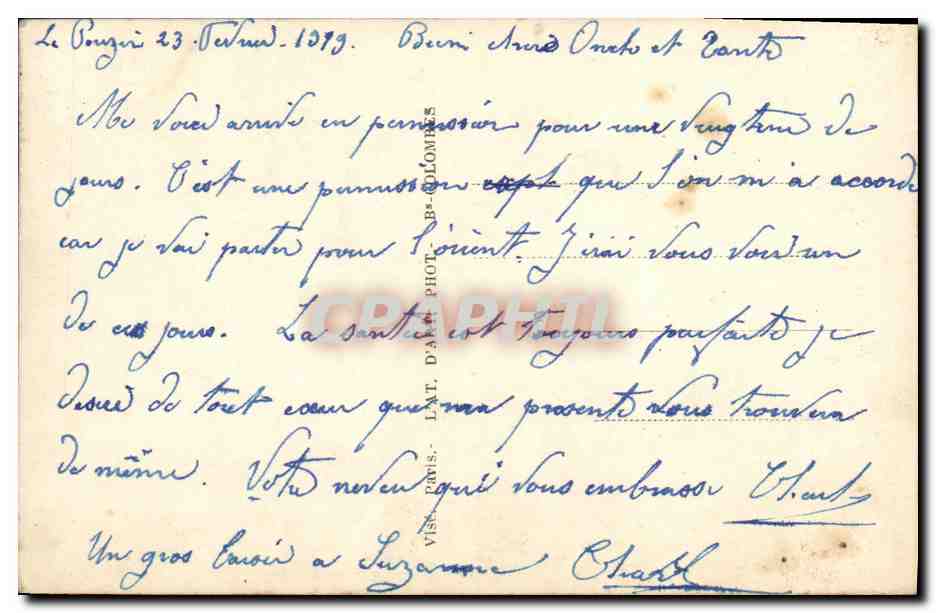 Le Pouzin 23 Fevrier 1919. Bien chers Oncle et Tante
Me voici arrivé en permission pour une vingtene de
jours. C'est une permission que l'on m'a accordé
car je vai partir pour l'orient. J'irai vous voir un
de ces jours. La santée est toujours parfaite je
desire de tout coeur que ma presente vous trouvera
de même. Votre neveu qui vous embrasse
Un gros Baisir a Suzanne
Visé Paris. - L'AT. D'ART PHOT. - Bs-COLOMBES
CPAPHIL